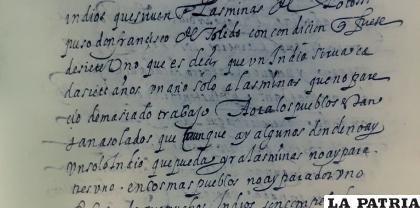 indios que siruen las minas de Potosi
puso don francisco de Toledo con condicion q fuese
de siete Vno que es decir que vn Indio sirua ca
da siete años vn año solo a las minas que no pare
cio demasiado trabajo Aora los pueblos estan
tan asolados que aunque ay algunos donde no ay
vn solo Indio que pueda yr a las minas no ay para
tres vno en otros mas pueblos no ay para dos vno
Indios
LA PATRIA